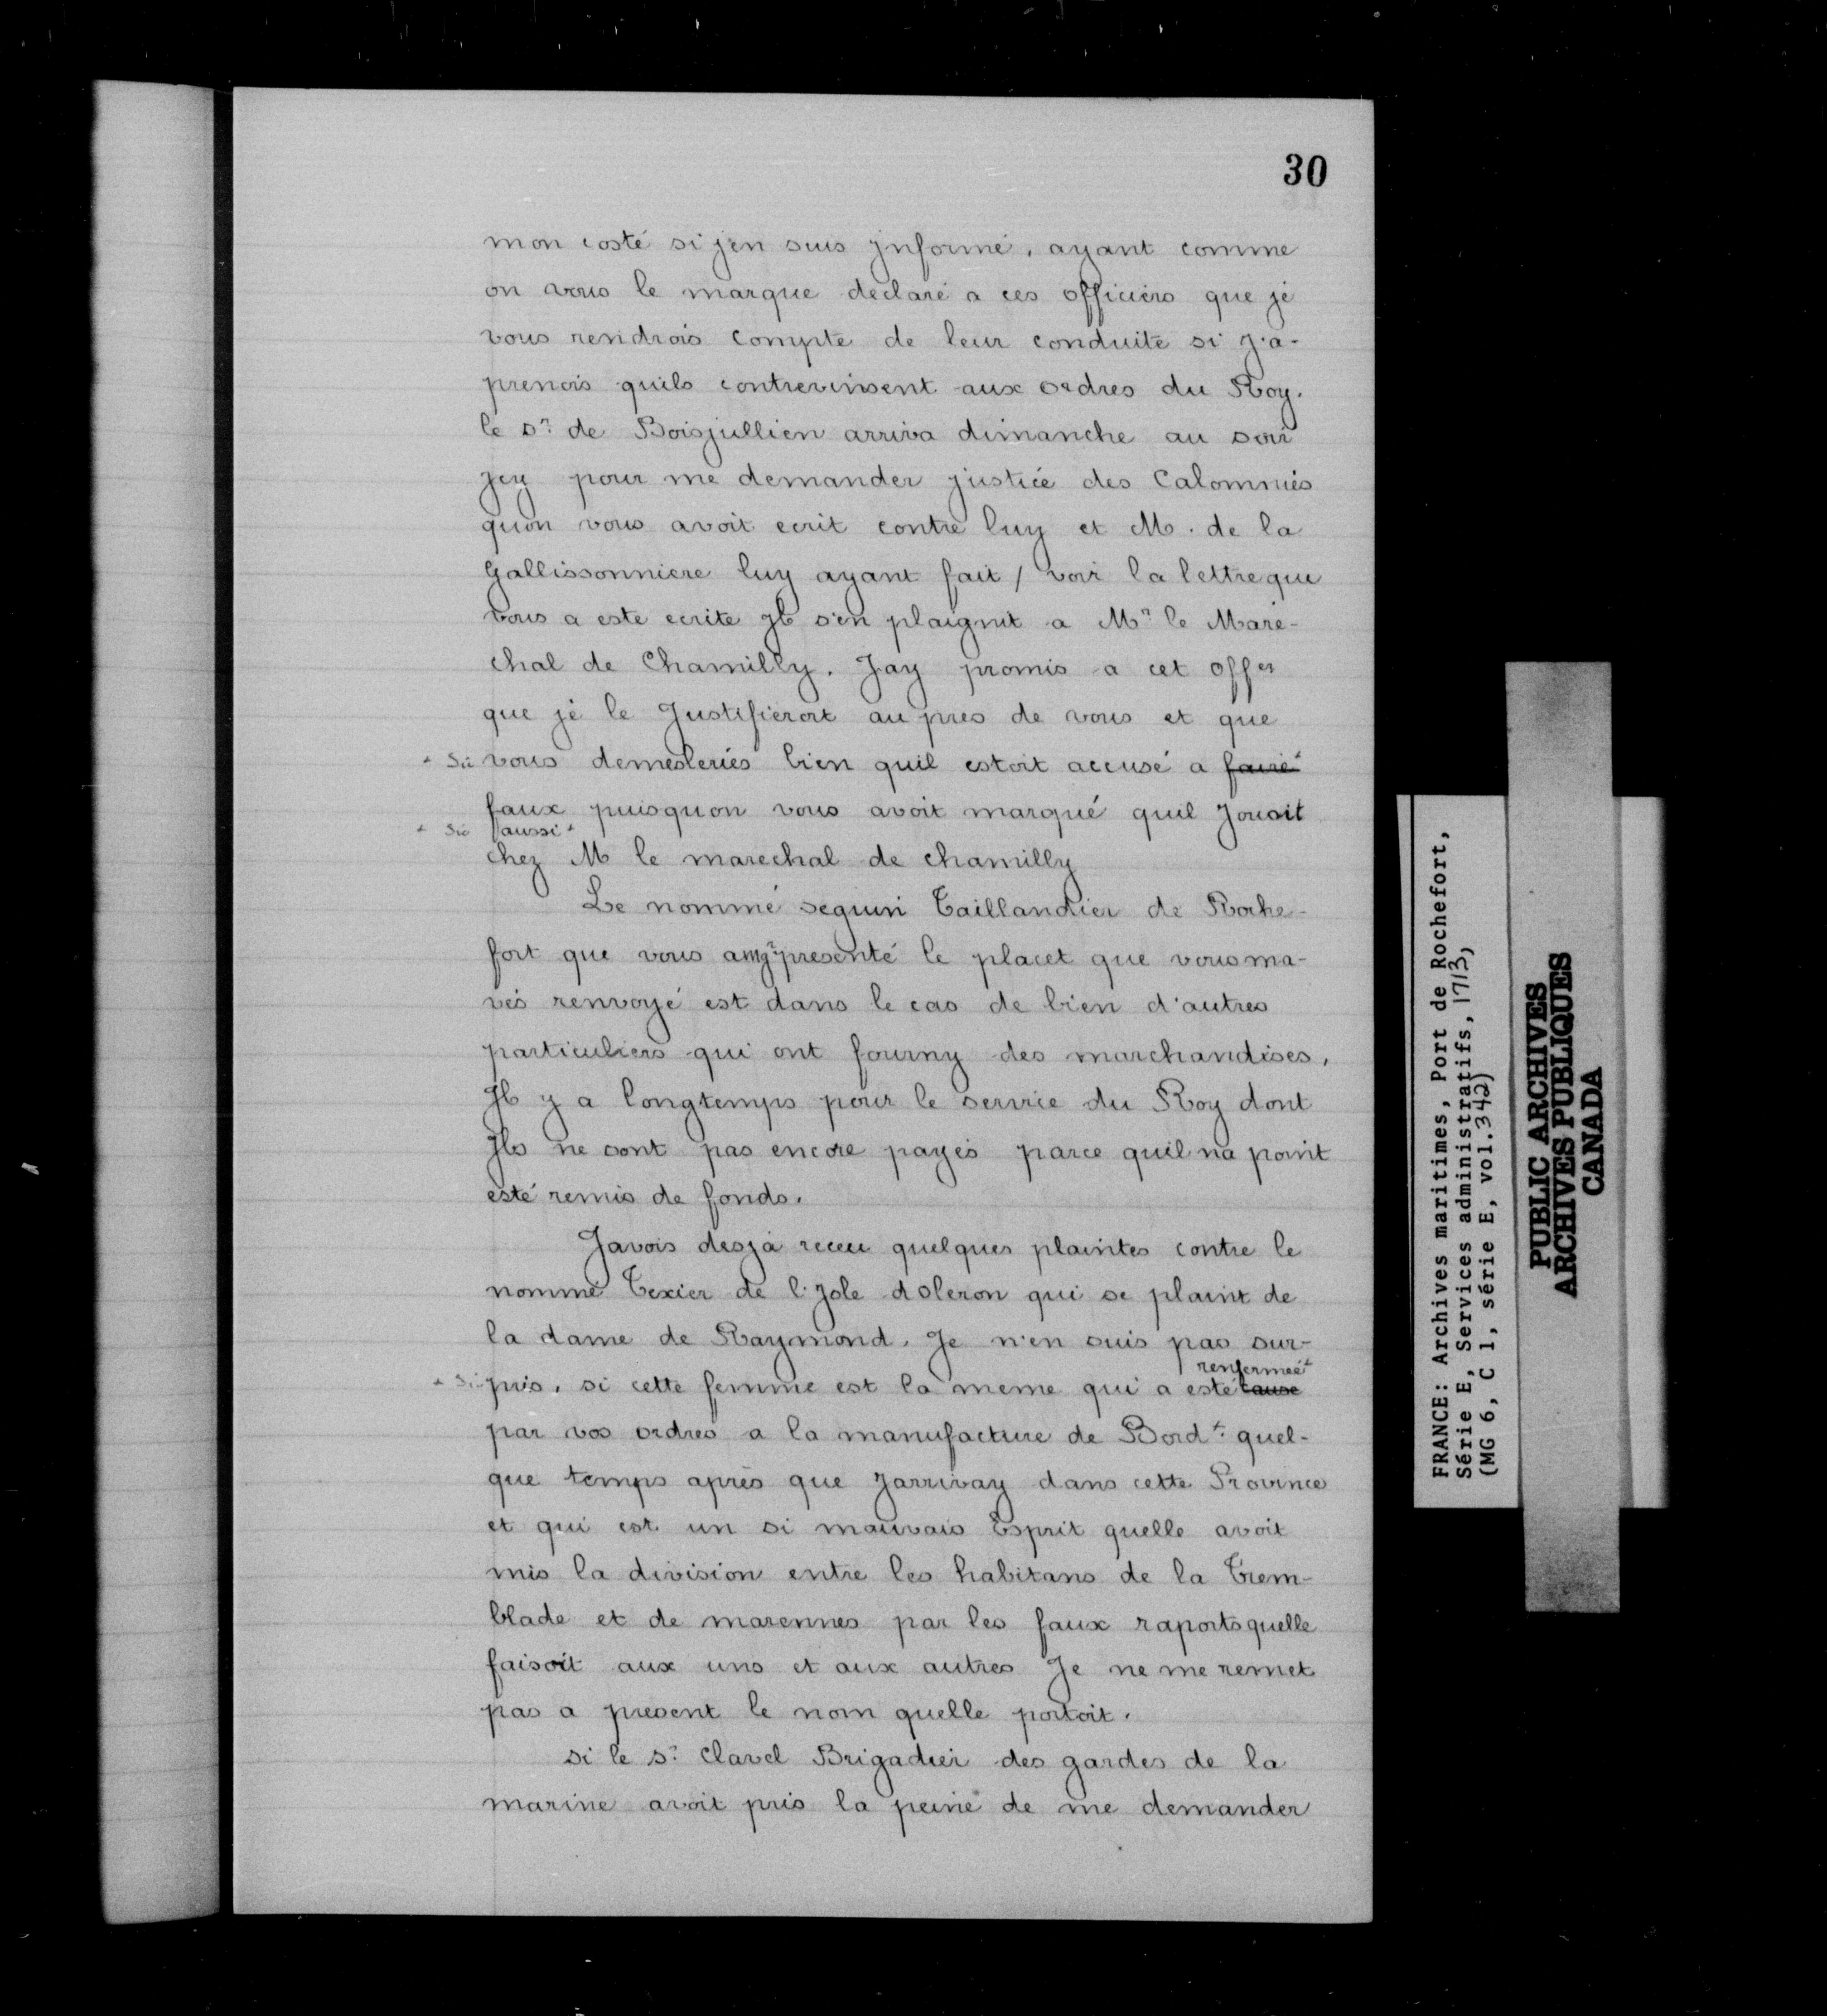 30
mon costé si j'en suis jnformé, ayant comme
on vous le marque declaré a ces officiers que je
vous rendrois compte de leur conduite si j'a-
prenois quils contrevinsent aux ordres du Roy.
le Sr. de Boisjullien arriva dimanche au soir
jcy pour me demander justice des Calomnies
quon vous avoit ecrit contre luy et M. de la
Gallissonniere luy ayant fait / voir la lettre que
vous a este ecrite Jl s'en plaignit a Mr. le Maré-
chal de Chamilly. Jay promis a cet offer
que je le Justifierois au pres de vous et que
+ Sic vous demesleriés bien quil estoit accusé a ~~faire~~+
faux puisquon vous avoit marqué quil Jouoit
+ Sic aussi+
chez M le marechal de chamilly
Le nommé seguin Taillandier de Roche-
fort que vous a mgr presenté le placet que vous ma-
vés renvoyé est dans le cas de bien d'autres
particuliers qui ont fourny des marchandises.
Jl y a longtemps pour le service du Roy dont
Jls ne sont pas encore payés parce quil na point
esté remis de fonds.
Javois desja receu quelques plaintes contre le
nommé Texier de l'Jsle doleron qui se plaint de
la dame de Raymond. Je n'en suis pas sur-
renfermeé+
+ Sic pris, si cette femme est la meme qui a esté ~~cause~~
par vos ordres a la manufacture de Bordx. quel-
que temps après que Jarrivay dans cette Province
et qui est un si mauvais Esprit quelle avoit
mis la division entre les habitans de la Trem-
blade et de marennes par les faux raports quelle
faisoit aux uns et aux autres Je ne me remet
pas a present le nom quelle portoit.
si le Sr. Clavel Brigadier des gardes de la
marine avoit pris la peine de me demander
FRANCE: Archives maritimes, Port de Rochefort,
Série E, Services administratifs, 1713,
(MG 6, C 1, série E, vol. 342)
PUBLIC ARCHIVES
ARCHIVES PUBLIQUES
CANADA